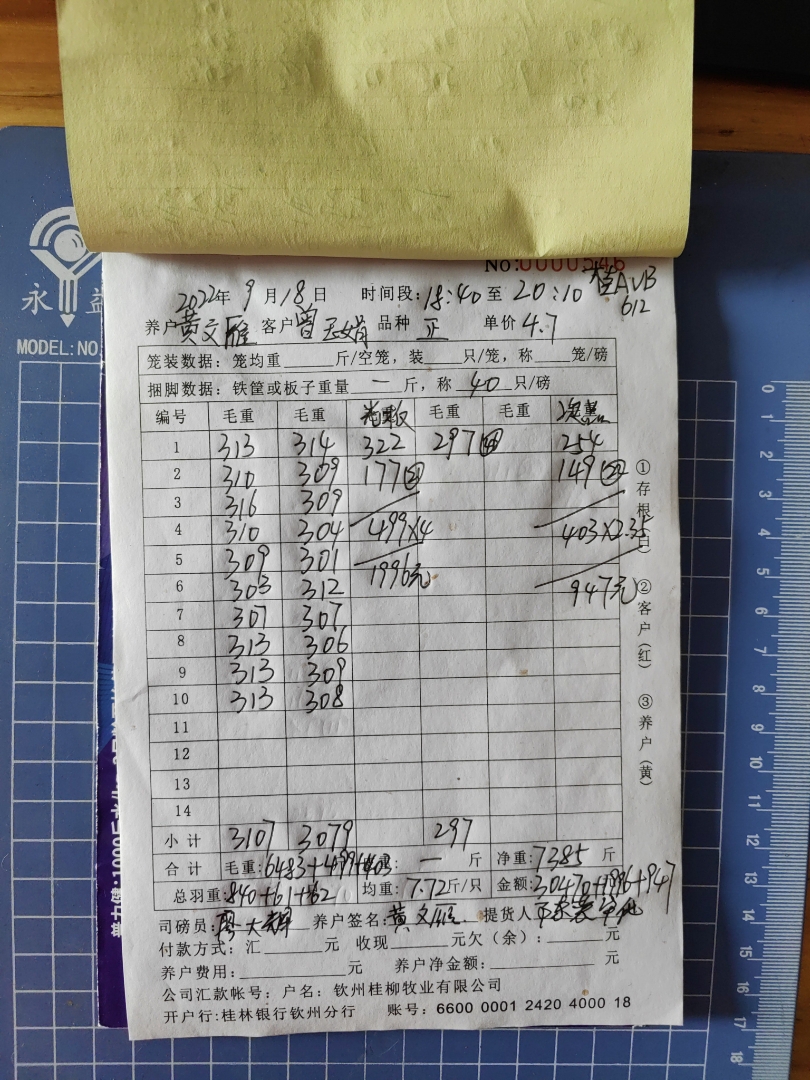 No:0000546
2022年 9月18日 时间段:18:40至20:10 桂AVB
612
养户黄文雁 客户曾 品种 正 单价 4.7
笼装数据: 笼均重____斤/空笼, 装____只/笼, 称____笼/磅
捆脚数据: 铁筐或板子重量 一 斤, 称 40 只/磅
编号 毛重 毛重 毛重 毛重
1 313 314 322 297 254
2 310 309 177 149
3 316 309
4 310 304 499×4 403×2.35
5 309 301
1996元
6 303 312 947元
7 307 307
8 313 306
9 313 309
10 313 308
11
12
13
14
小计 3107 3079 297
合计 毛重:6483+499+403 一 斤 净重:7385 斤
总羽重:840+61+62 均重:7.72斤/只 金额:30470+1996+947
司磅员: 养户签名:黄文雁 提货人
付款方式: 汇____元 收现____元欠(余):____元
养户费用:____元 养户净金额:____元
公司汇款帐号: 户名: 钦州桂柳牧业有限公司
开户行:桂林银行钦州分行 账号: 6600 0001 2420 4000 18
①存根
②客户(红)
③养户(黄)
永
MODEL:NO
0
1
2
3
4
5
6
7
8
9
10
11
12
13
14
15
16
17
18